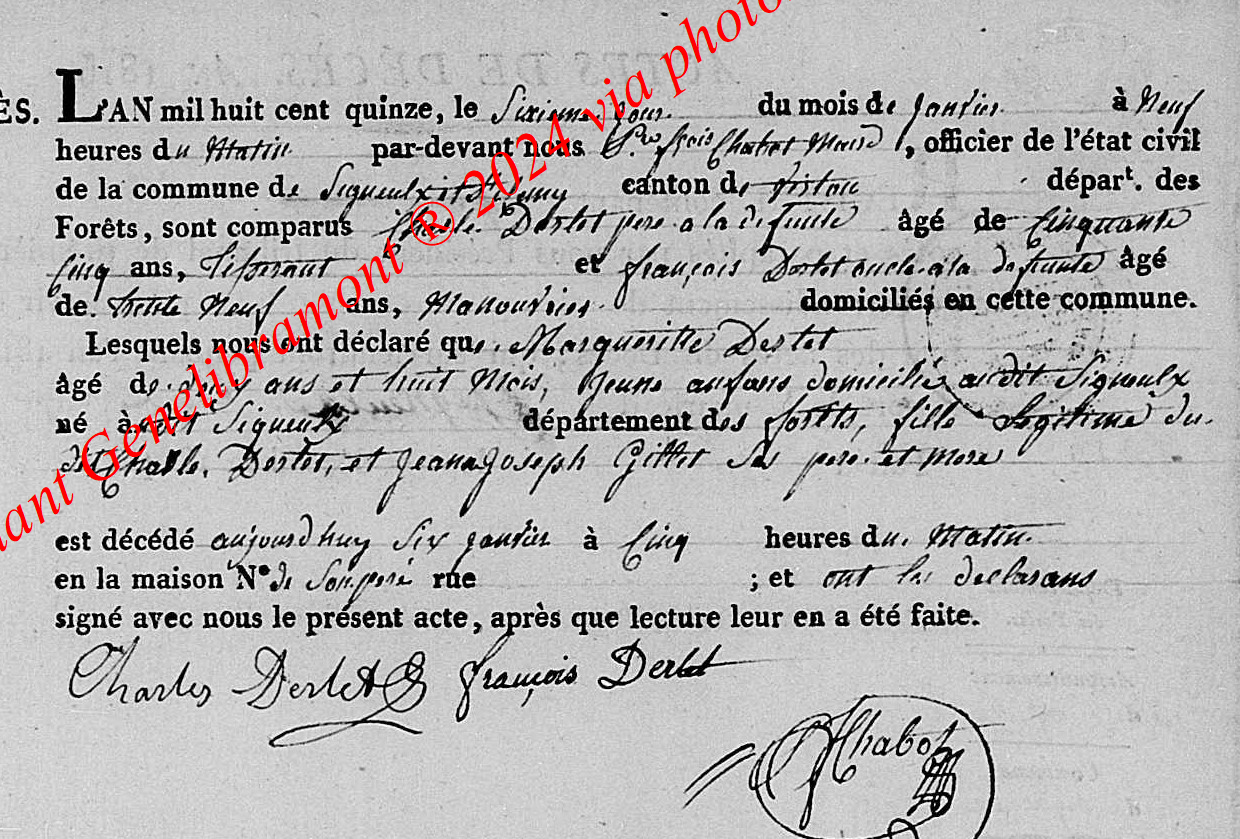 ÈS. L'AN mil huit cent quinze, le Sixieme jour du mois de janvier à Neuf
heures du Matin par-devant nous Pre frçois Chabot Maire, officier de l'état civil
de la commune de Signeulx et St Remy canton de Virton départ. des
Forêts, sont comparus Charle Dertet pere a la defunte âgé de Cinquante
Cinq ans, Tisserant et françois Dertet oncle a la defunte âgé
de trente Neuf ans, Manouvrier domiciliés en cette commune.
Lesquels nous ont déclaré que Margueritte Dertet
âgé de deux ans et huit Mois, jeune anfans domicilié audit Signeulx
né à dit Signeulx département des forêts, fille Legitime du
dit Charle Dertet, et Jeanne Joseph Gillet ses pere et mere
est décédé aujourdhuy Six janvier à Cinq heures du Matin
en la maison N° de Son pere rue ; et ont les declarans
signé avec nous le présent acte, après que lecture leur en a été faite.
Charles Derlet françois Derlet
Chabot
nant Genelibramont ® 2024 via photo